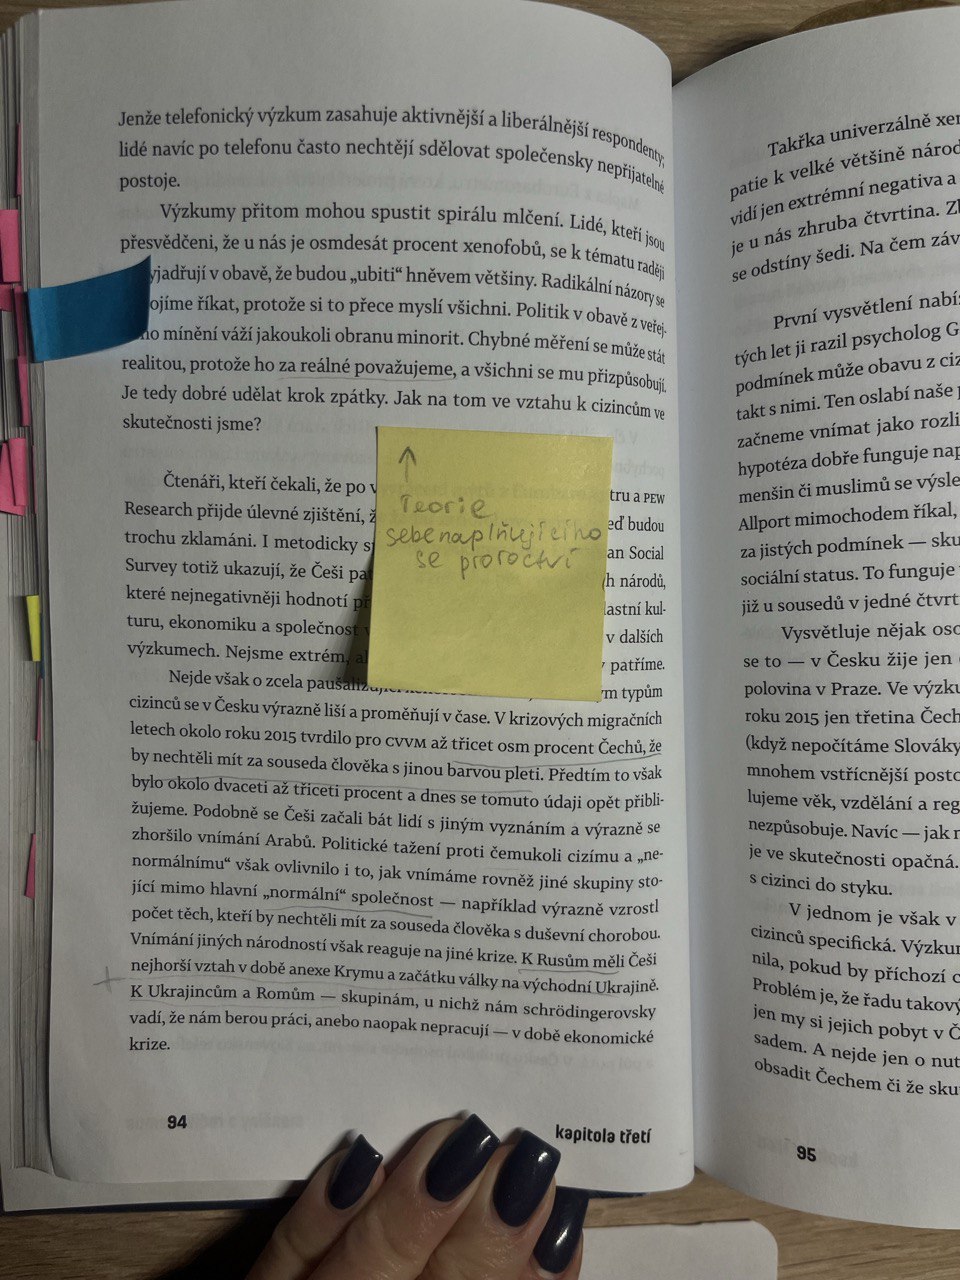 Jenže telefonický výzkum zasahuje aktivnější a liberálnější respondenty;
lidé navíc po telefonu často nechtějí sdělovat společensky nepřijatelné
postoje.
Výzkumy přitom mohou spustit spirálu mlčení. Lidé, kteří jsou
přesvědčeni, že u nás je osmdesát procent xenofobů, se k tématu raději
yjadřují v obavě, že budou „ubiti“ hněvem většiny. Radikální názory se
ojíme říkat, protože si to přece myslí všichni. Politik v obavě z veřej-
ho mínění váží jakoukoli obranu minorit. Chybné měření se může stát
realitou, protože ho za reálné považujeme, a všichni se mu přizpůsobují.
Je tedy dobré udělat krok zpátky. Jak na tom ve vztahu k cizincům ve
skutečnosti jsme?
↑
Teorie
sebenaplňujícího
se proroctví
Čtenáři, kteří čekali, že po v tru a PEW
Research přijde úlevné zjištění, ž eď budou
trochu zklamáni. I metodicky an Social
Survey totiž ukazují, že Češi pat h národů,
které nejnegativněji hodnotí lastní kul-
turu, ekonomiku a společnost v dalších
výzkumech. Nejsme extrém, patříme.
Nejde však o zcela typům
cizinců se v Česku výrazně liší a proměňují v čase. V krizových migračních
letech okolo roku 2015 tvrdilo pro CVVM až třicet osm procent Čechů, že
by nechtěli mít za souseda člověka s jinou barvou pleti. Předtím to však
bylo okolo dvaceti až třiceti procent a dnes se tomuto údaji opět přibli-
žujeme. Podobně se Češi začali bát lidí s jiným vyznáním a výrazně se
zhoršilo vnímání Arabů. Politické tažení proti čemukoli cizímu a „ne-
normálnímu“ však ovlivnilo i to, jak vnímáme rovněž jiné skupiny sto-
jící mimo hlavní „normální“ společnost — například výrazně vzrostl
počet těch, kteří by nechtěli mít za souseda člověka s duševní chorobou.
Vnímání jiných národností však reaguje na jiné krize. K Rusům měli Češi
nejhorší vztah v době anexe Krymu a začátku války na východní Ukrajině.
K Ukrajincům a Romům — skupinám, u nichž nám schrödingerovsky
vadí, že nám berou práci, anebo naopak nepracují — v době ekonomické
krize.
94
kapitola třetí
Takřka univerzálně xen
patie k velké většině národ
vidí jen extrémní negativa a
je u nás zhruba čtvrtina. Zb
se odstíny šedi. Na čem záv
První vysvětlení nabíz
tých let ji razil psycholog G
podmínek může obavu z ciz
takt s nimi. Ten oslabí naše p
začneme vnímat jako rozli
hypotéza dobře funguje nap
menšin či muslimů se výsle
Allport mimochodem říkal,
za jistých podmínek — sku
sociální status. To funguje
již u sousedů v jedné čtvrt
Vysvětluje nějak oso
se to — v Česku žije jen
polovina v Praze. Ve výzku
roku 2015 jen třetina Čech
(když nepočítáme Slováky
mnohem vstřícnější posto
lujeme věk, vzdělání a reg
nezpůsobuje. Navíc — jak n
je ve skutečnosti opačná.
s cizinci do styku.
V jednom je však v
cizinců specifická. Výzkum
nila, pokud by příchozí c
Problém je, že řadu takový
jen my si jejich pobyt v Č
sadem. A nejde jen o nut
obsadit Čechem či že sku
95